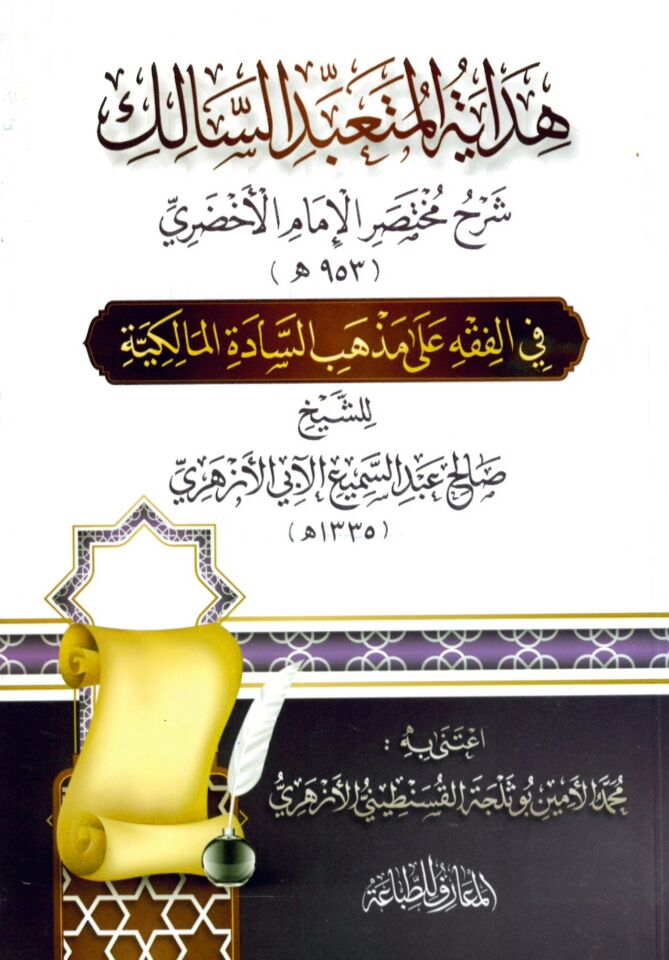 هِدَايَةُ المُتَعَبِّدِ السَّالِكِ
شَرْحُ مُخْتَصَرِ الإِمَامِ الأَخْضَرِيِّ
(٩٥٣ هـ)
فِي الفِقْهِ عَلَى مَذْهَبِ السَّادَةِ المَالِكِيَّةِ
لِلشَّيْخِ
صَالِح عَبْدِ السَّمِيعِ الآبِي الأَزْهَرِيِّ
(١٣٣٥هـ)
اعْتَنَى بِهِ :
مُحَمَّد الأَمِين بُوثَلْجَة القُسَنْطِينِيُّ الأَزْهَرِيُّ
المعارف للطباعة